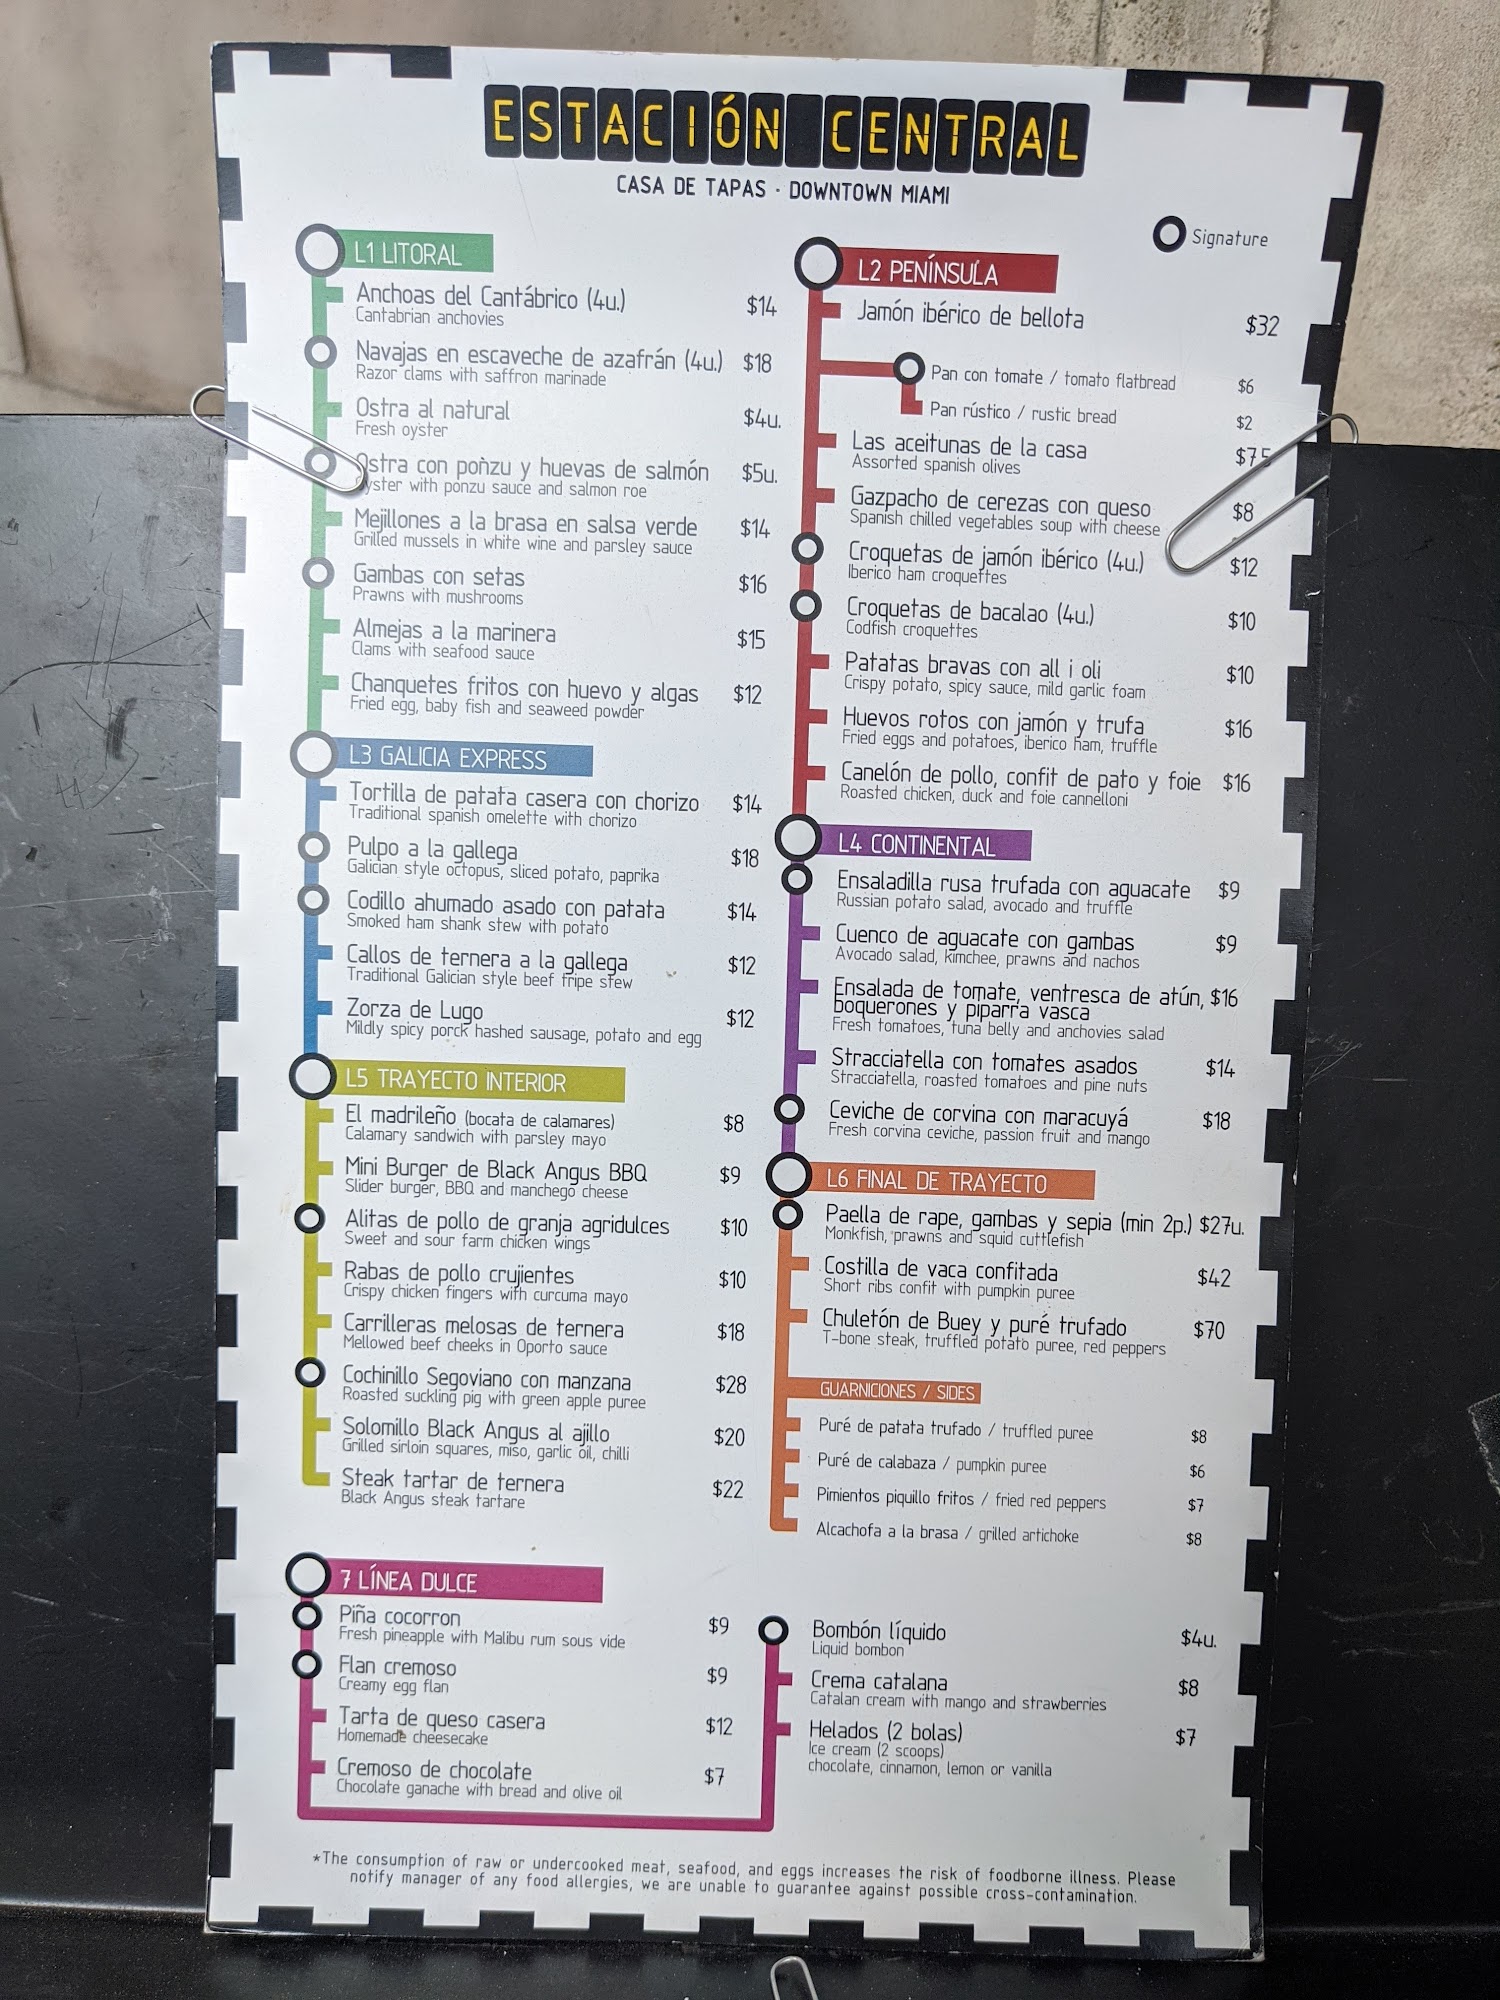 ESTACIÓN CENTRAL
CASA DE TAPAS · DOWNTOWN MIAMI
Signature
L1 LITORAL
Anchoas del Cantábrico (4u.) $14
Cantabrian anchovies
Navajas en escaveche de azafrán (4u.) $18
Razor clams with saffron marinade
Ostra al natural $4u.
Fresh oyster
Ostra con ponzu y huevas de salmón $5u.
Oyster with ponzu sauce and salmon roe
Mejillones a la brasa en salsa verde $14
Grilled mussels in white wine and parsley sauce
Gambas con setas $16
Prawns with mushrooms
Almejas a la marinera $15
Clams with seafood sauce
Chanquetes fritos con huevo y algas $12
Fried egg, baby fish and seaweed powder
L3 GALICIA EXPRESS
Tortilla de patata casera con chorizo $14
Traditional spanish omelette with chorizo
Pulpo a la gallega $18
Galician style octopus, sliced potato, paprika
Codillo ahumado asado con patata $14
Smoked ham shank stew with potato
Callos de ternera a la gallega $12
Traditional Galician style beef fripe stew
Zorza de Lugo $12
Mildly spicy porck hashed sausage, potato and egg
L5 TRAYECTO INTERIOR
El madrileño (bocata de calamares) $8
Calamary sandwich with parsley mayo
Mini Burger de Black Angus BBQ $9
Slider burger, BBQ and manchego cheese
Alitas de pollo de granja agridulces $10
Sweet and sour farm chicken wings
Rabas de pollo crujientes $10
Crispy chicken fingers with curcuma mayo
Carrilleras melosas de ternera $18
Mellowed beef cheeks in Oporto sauce
Cochinillo Segoviano con manzana $28
Roasted suckling pig with green apple puree
Solomillo Black Angus al ajillo $20
Grilled sirloin squares, miso, garlic oil, chilli
Steak tartar de ternera $22
Black Angus steak tartare
L2 PENÍNSULA
Jamón ibérico de bellota $32
Pan con tomate / tomato flatbread $6
Pan rústico / rustic bread $2
Las aceitunas de la casa $7.5
Assorted spanish olives
Gazpacho de cerezas con queso $8
Spanish chilled vegetables soup with cheese
Croquetas de jamón ibérico (4u.) $12
Iberico ham croquettes
Croquetas de bacalao (4u.) $10
Codfish croquettes
Patatas bravas con all i oli $10
Crispy potato, spicy sauce, mild garlic foam
Huevos rotos con jamón y trufa $16
Fried eggs and potatoes, iberico ham, truffle
Canelón de pollo, confit de pato y foie $16
Roasted chicken, duck and foie cannelloni
L4 CONTINENTAL
Ensaladilla rusa trufada con aguacate $9
Russian potato salad, avocado and truffle
Cuenco de aguacate con gambas $9
Avocado salad, kimchee, prawns and nachos
Ensalada de tomate, ventresca de atún, $16
boquerones y piparra vasca
Fresh tomatoes, tuna belly and anchovies salad
Stracciatella con tomates asados $14
Stracciatella, roasted tomatoes and pine nuts
Ceviche de corvina con maracuyá $18
Fresh corvina ceviche, passion fruit and mango
L6 FINAL DE TRAYECTO
Paella de rape, gambas y sepia (min 2p.) $27u.
Monkfish, prawns and squid cuttlefish
Costilla de vaca confitada $42
Short ribs confit with pumpkin puree
Chuletón de Buey y puré trufado $70
T-bone steak, truffled potato puree, red peppers
GUARNICIONES / SIDES
Puré de patata trufado / truffled puree $8
Puré de calabaza / pumpkin puree $6
Pimientos piquillo fritos / fried red peppers $7
Alcachofa a la brasa / grilled artichoke $8
7 LÍNEA DULCE
Piña cocorron $9
Fresh pineapple with Malibu rum sous vide
Flan cremoso $9
Creamy egg flan
Tarta de queso casera $12
Homemade cheesecake
Cremoso de chocolate $7
Chocolate ganache with bread and olive oil
Bombón líquido $4u.
Liquid bombon
Crema catalana $8
Catalan cream with mango and strawberries
Helados (2 bolas) $7
Ice cream (2 scoops)
chocolate, cinnamon, lemon or vanilla
*The consumption of raw or undercooked meat, seafood, and eggs increases the risk of foodborne illness. Please
notify manager of any food allergies, we are unable to guarantee against possible cross-contamination.